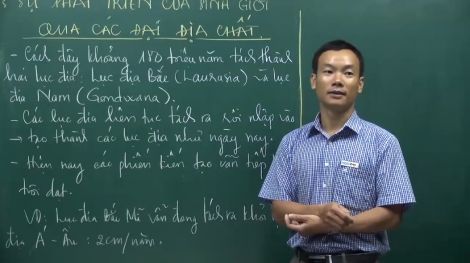 SỰ PHÁT TRIỂN CỦA SINH GIỚI
QUA CÁC ĐẠI ĐỊA CHẤT.
- Cách đây khoảng 180 triệu năm tách thành
hai lục địa: Lục địa Bắc (Laurasia) và lục
địa Nam (Gondwana).
- Các lục địa liên tục tách ra rồi nhập vào
→ tạo thành các lục địa như ngày nay.
- Hiện nay các phiến kiến tạo vẫn tiếp
trôi dạt.
VD: Lục địa Bắc Mĩ vẫn đang tách ra khỏi
địa Á - Âu : 2cm/năm.